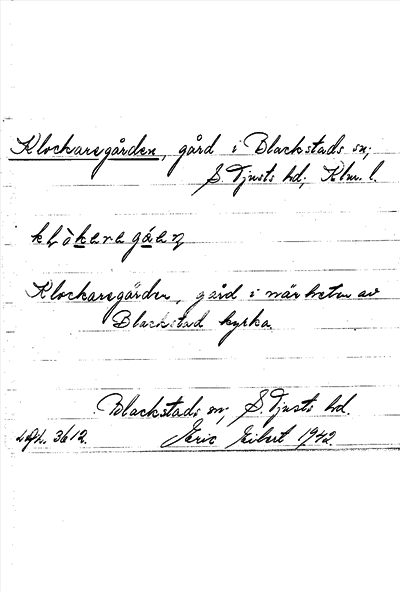 Klockaregården, gård i Blackstads sn,
S. Tjusts hd, Klm. l.
Klockaregården, gård i närheten av
Blackstad kyrka.
Blackstads sn, S. Tjusts hd.
3612. Eric Eibert 1942.